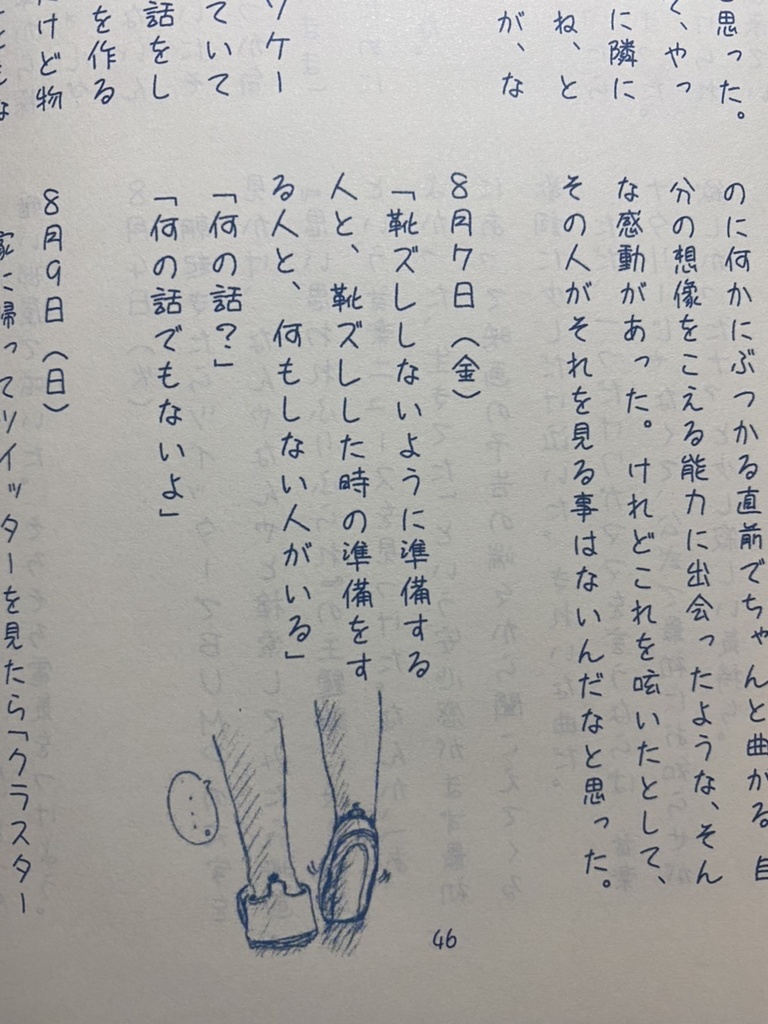 思った。
、やっ
に隣に
ね、と
が、な
ツケー
ていて
話をし
を作る
だけど物
のに何かにぶつかる直前でちゃんと曲がる。自
分の想像をこえる能力に出会ったような、そん
な感動があった。けれどこれを呟いたとして、
その人がそれを見る事はないんだなと思った。
8月7日(金)
「靴ズレしないように準備する
人と、靴ズレした時の準備をす
る人と、何もしない人がいる」
「何の話?」
「何の話でもないよ」
8月9日(日)
家に帰ってツイッターを見たら「クラスター
46